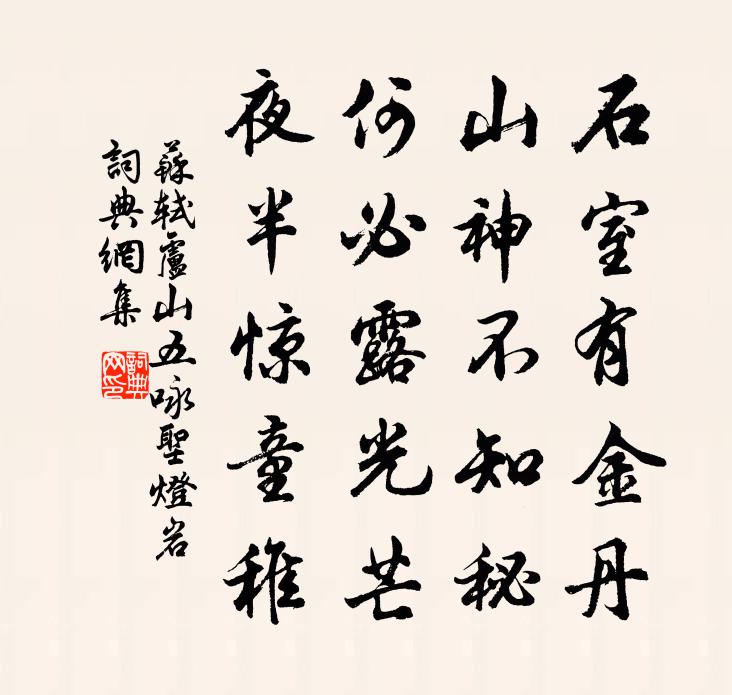 石室有金丹
山神不知秘
何必露光芒
夜半惊童稚
蘇軾廬山五咏聖燈岩
詞典網集
詞典網印